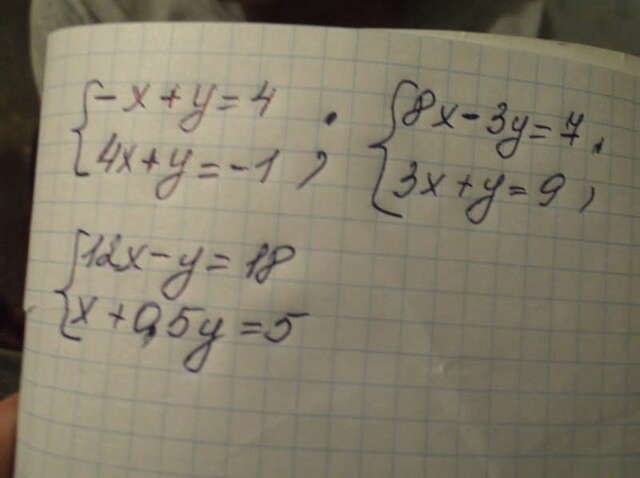 {-x+y=4
{4x+y=-1;
{8x-3y=7,
{3x+y=9;
{12x-y=18
{x+0,5y=5